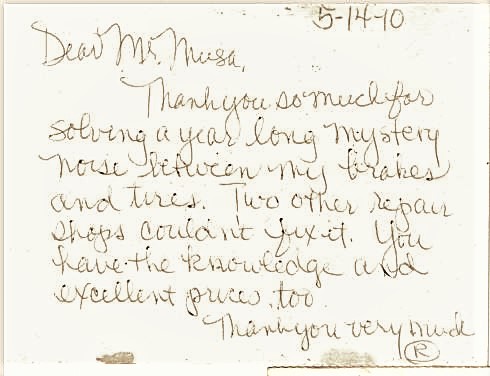 5-14-10
Dear Mr. Musa,
Thank you so much for
solving a year long mystery
noise between my brakes
and tires. Two other repair
shops couldn't fix it. You
have the knowledge and
excellent prices, too.
Thank you very much
R